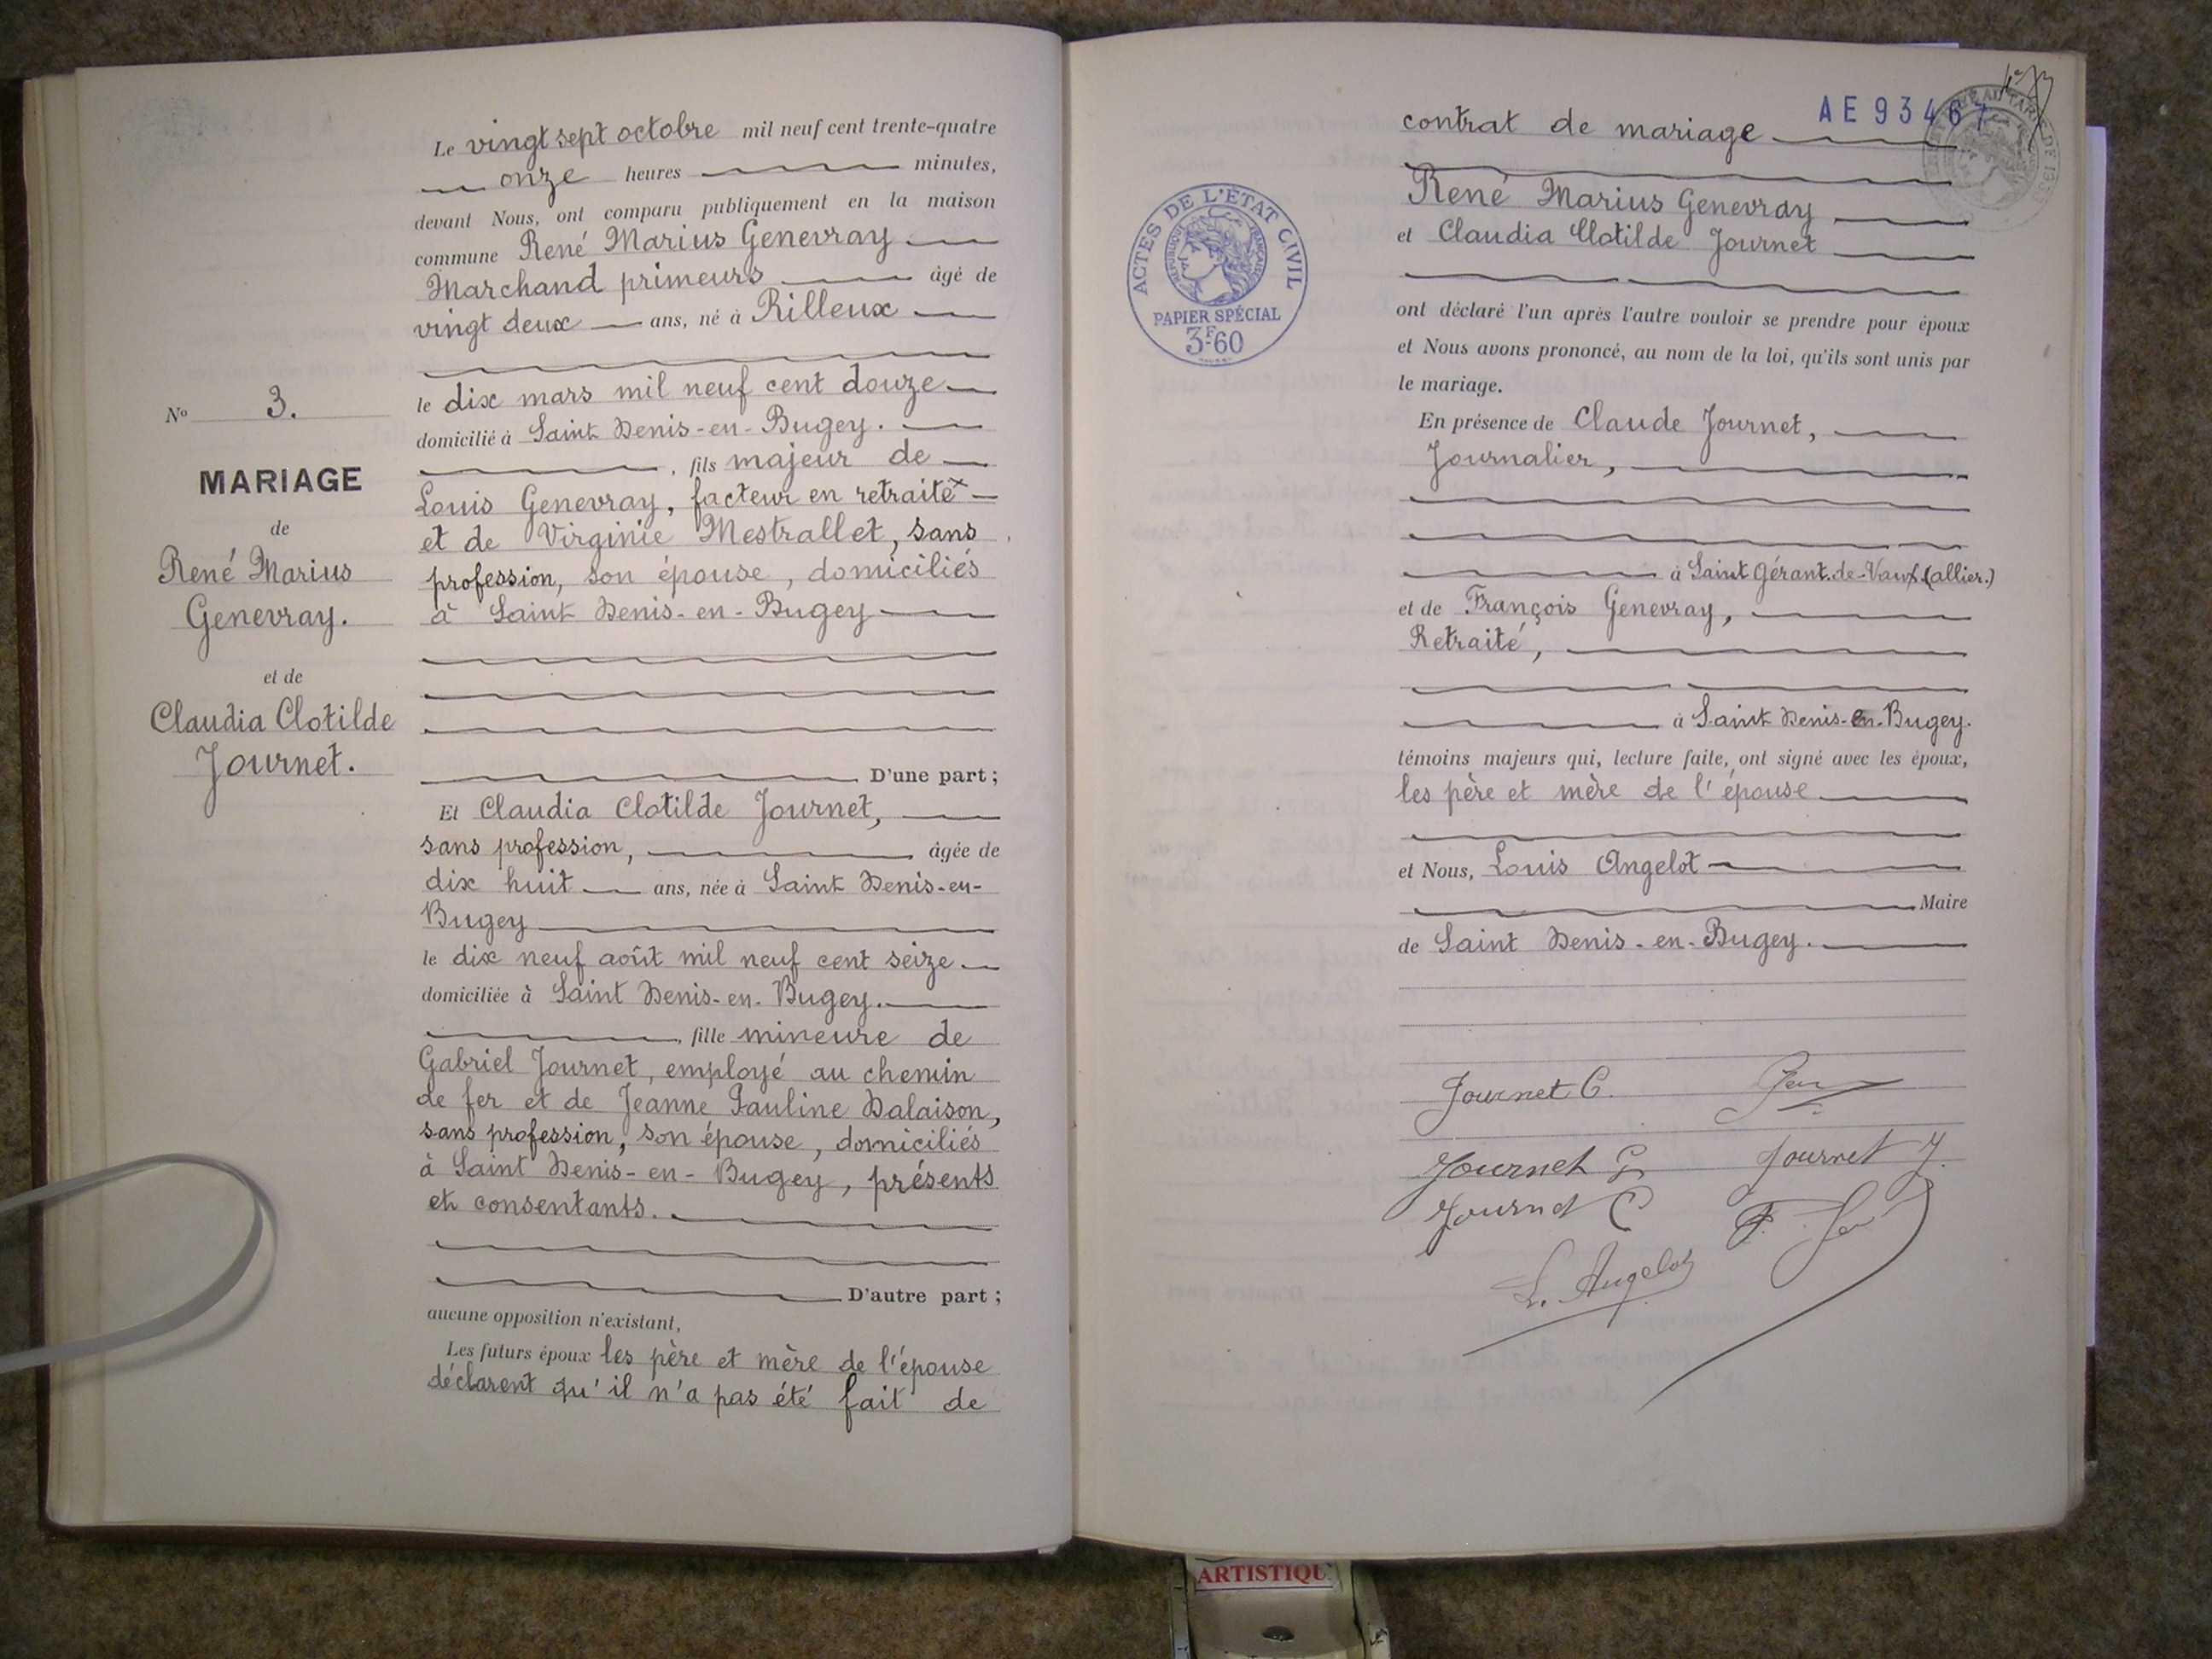 Nº 3.
MARIAGE
de
René Marius
Genevray.
et de
Claudia Clotilde
Journet.
Le vingt sept octobre mil neuf cent trente-quatre
onze heures minutes,
devant Nous, ont comparu publiquement en la maison
commune René Marius Genevray
Marchand primeurs âgé de
vingt deux ans, né à Rilleux
le dix mars mil neuf cent douze
domicilié à Saint Denis-en-Bugey.
, fils majeur de
Louis Genevray, facteur en retraite
et de Virginie Mestrallet, sans
profession, son épouse, domiciliés
à Saint Denis-en-Bugey
D'une part ;
Et Claudia Clotilde Journet,
sans profession, âgée de
dix huit ans, née à Saint Denis-en-
Bugey
le dix neuf août mil neuf cent seize
domiciliée à Saint Denis-en-Bugey.
, fille mineure de
Gabriel Journet, employé au chemin
de fer et de Jeanne Pauline Dalaison,
sans profession, son épouse, domiciliés
à Saint Denis-en-Bugey, présents
et consentants.
D'autre part ;
aucune opposition n'existant,
Les futurs époux les père et mère de l'épouse
déclarent qu'il n'a pas été fait de
AE93467
contrat de mariage
René Marius Genevray
et Claudia Clotilde Journet
ACTES DE L'ÉTAT CIVIL
RÉPUBLIQUE FRANÇAISE
PAPIER SPÉCIAL
3F60
ont déclaré l'un après l'autre vouloir se prendre pour époux
et Nous avons prononcé, au nom de la loi, qu'ils sont unis par
le mariage.
En présence de Claude Journet,
Journalier,
à Saint Gérant-de-Vaux (allier.)
et de François Genevray,
Retraité,
à Saint Denis-en-Bugey.
témoins majeurs qui, lecture faite, ont signé avec les époux,
les père et mère de l'épouse
et Nous, Louis Angelot
Maire
de Saint Denis-en-Bugey.
Journet C.
Journet G
Journet J.
Journet C
L. Angelot
ARTISTIQU